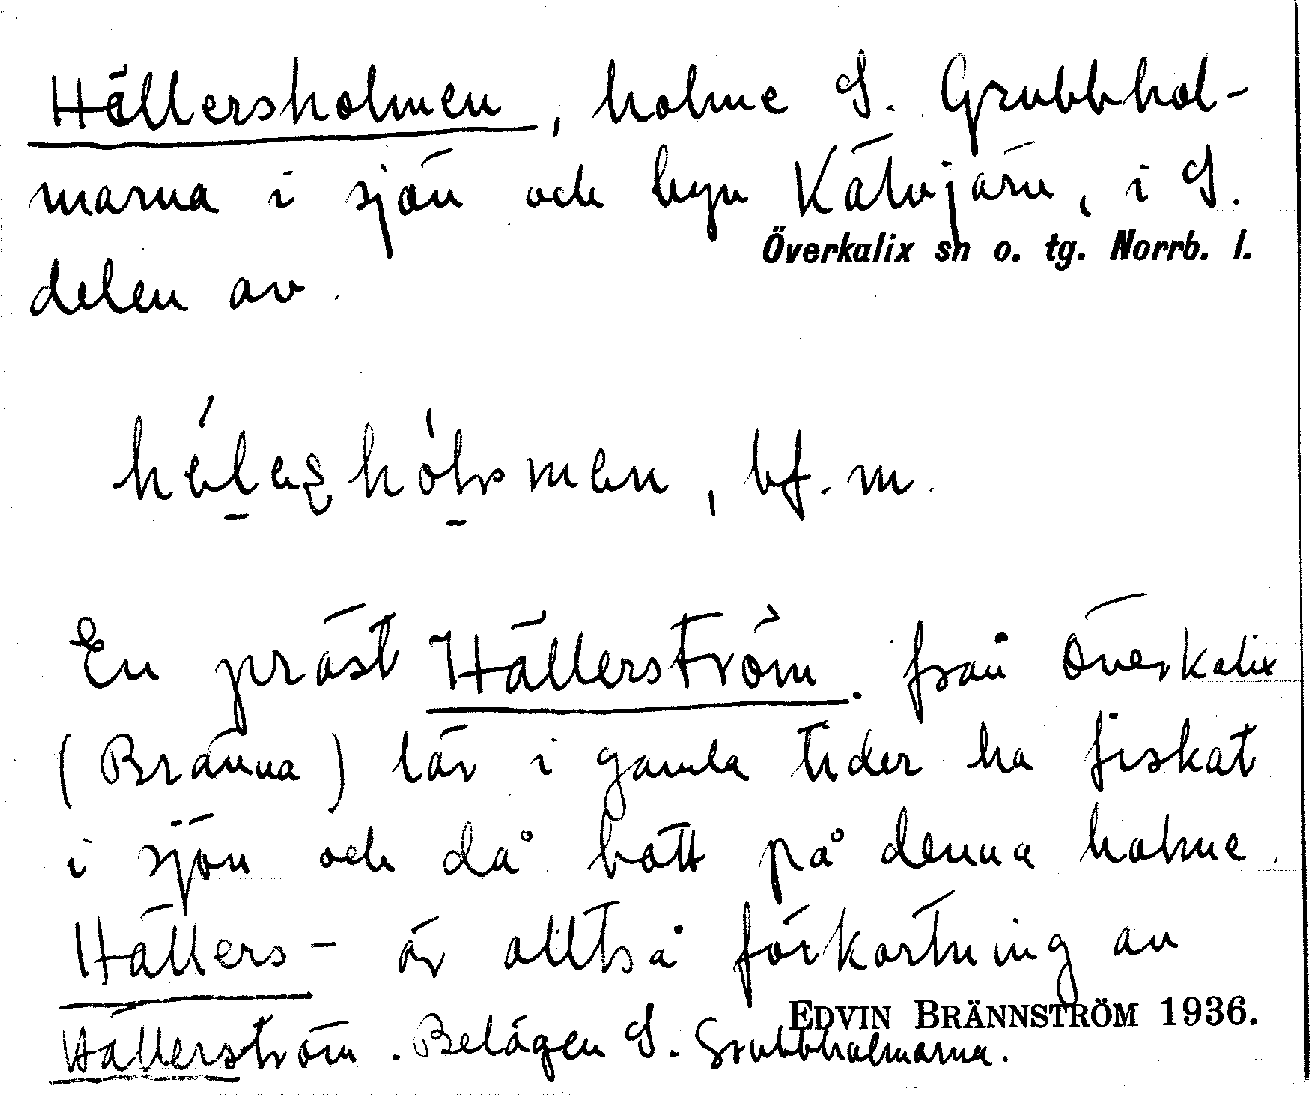 Hällersholmen, holme S. Grubbhol-
marna i sjön och byn Kätvojärv, i S.
Överkalix sn o. tg. Norrb. l.
delen av.
bf. m.
En präst Hällerström. från Överkalix
(Bränna) lär i gamla tider ha fiskat
i sjön och då bott på denna holme.
Hällers- är alltså förkortning av
EDVIN BRÄNNSTRÖM 1936.
Hällerström. Belägen S. Grubbholmarna.